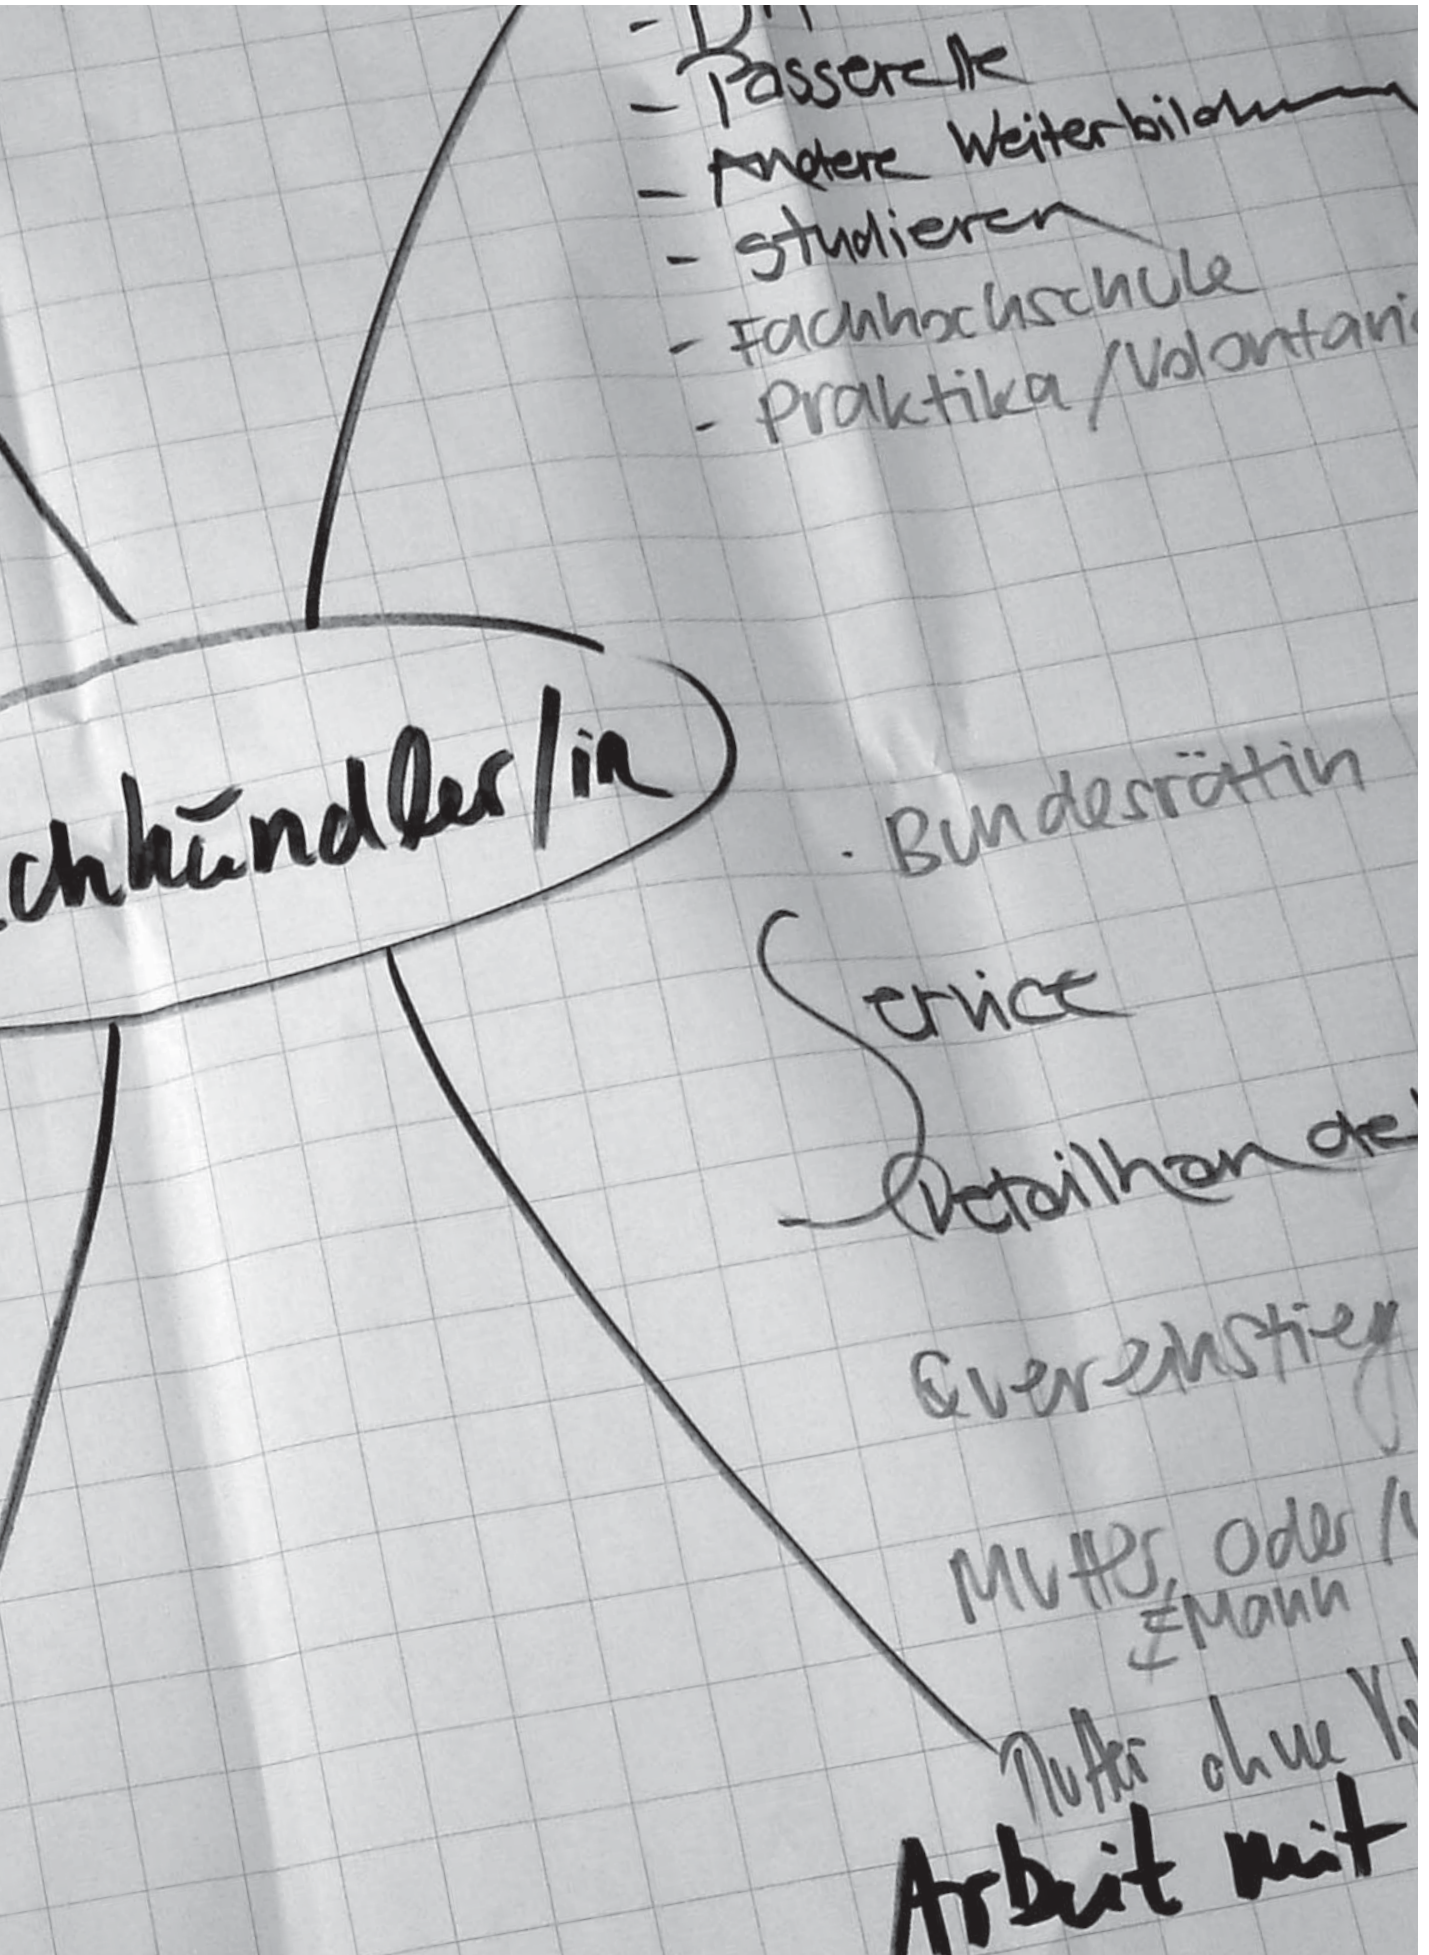 - Passerelle
- Andere Weiterbildung
- studieren
- Fachhochschule
- Praktika / Volontari
chhändler/in
· Bundesrätin
Service
- Detailhandel
Quereinstieg
Mutter, oder /
Mann
Mutter ohne
Arbeit mit